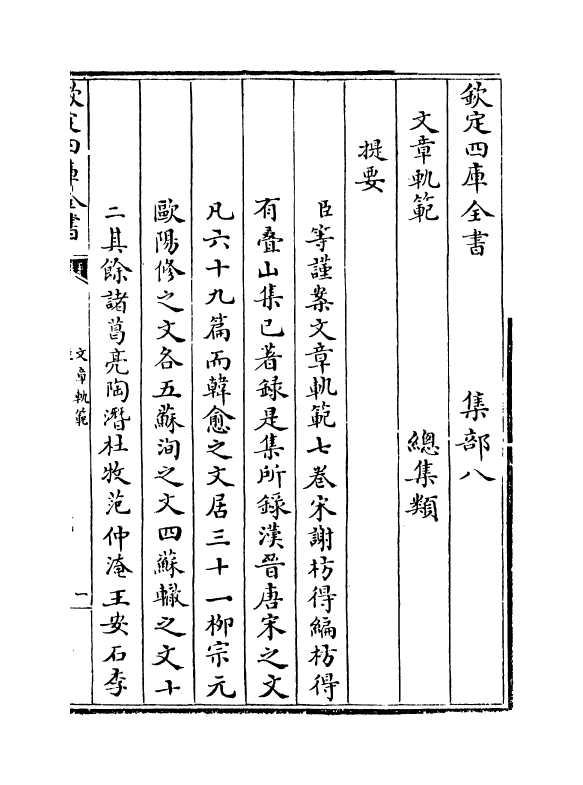 欽定四庫全書 集部八
文章軌範 總集類
提要
臣等謹案文章軌範七卷宋謝枋得編枋得
有疊山集已著録是集所錄漢晉唐宋之文
凡六十九篇而韓愈之文居三十一柳宗元
歐陽修之文各五蘇洵之文四蘇轍之文十
二其餘諸葛亮陶潛杜牧范仲淹王安石李
欽定四庫全書
文章軌範